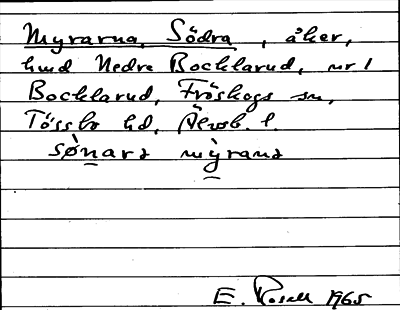 Myrarna, Södra, åker,
hmd Nedre Bocklarud, nr 1
Bocklarud, Fröskogs sn,
Tössbo hd, Älvsb. l.
sø̀nara mỳrana
E. Rosell 1965